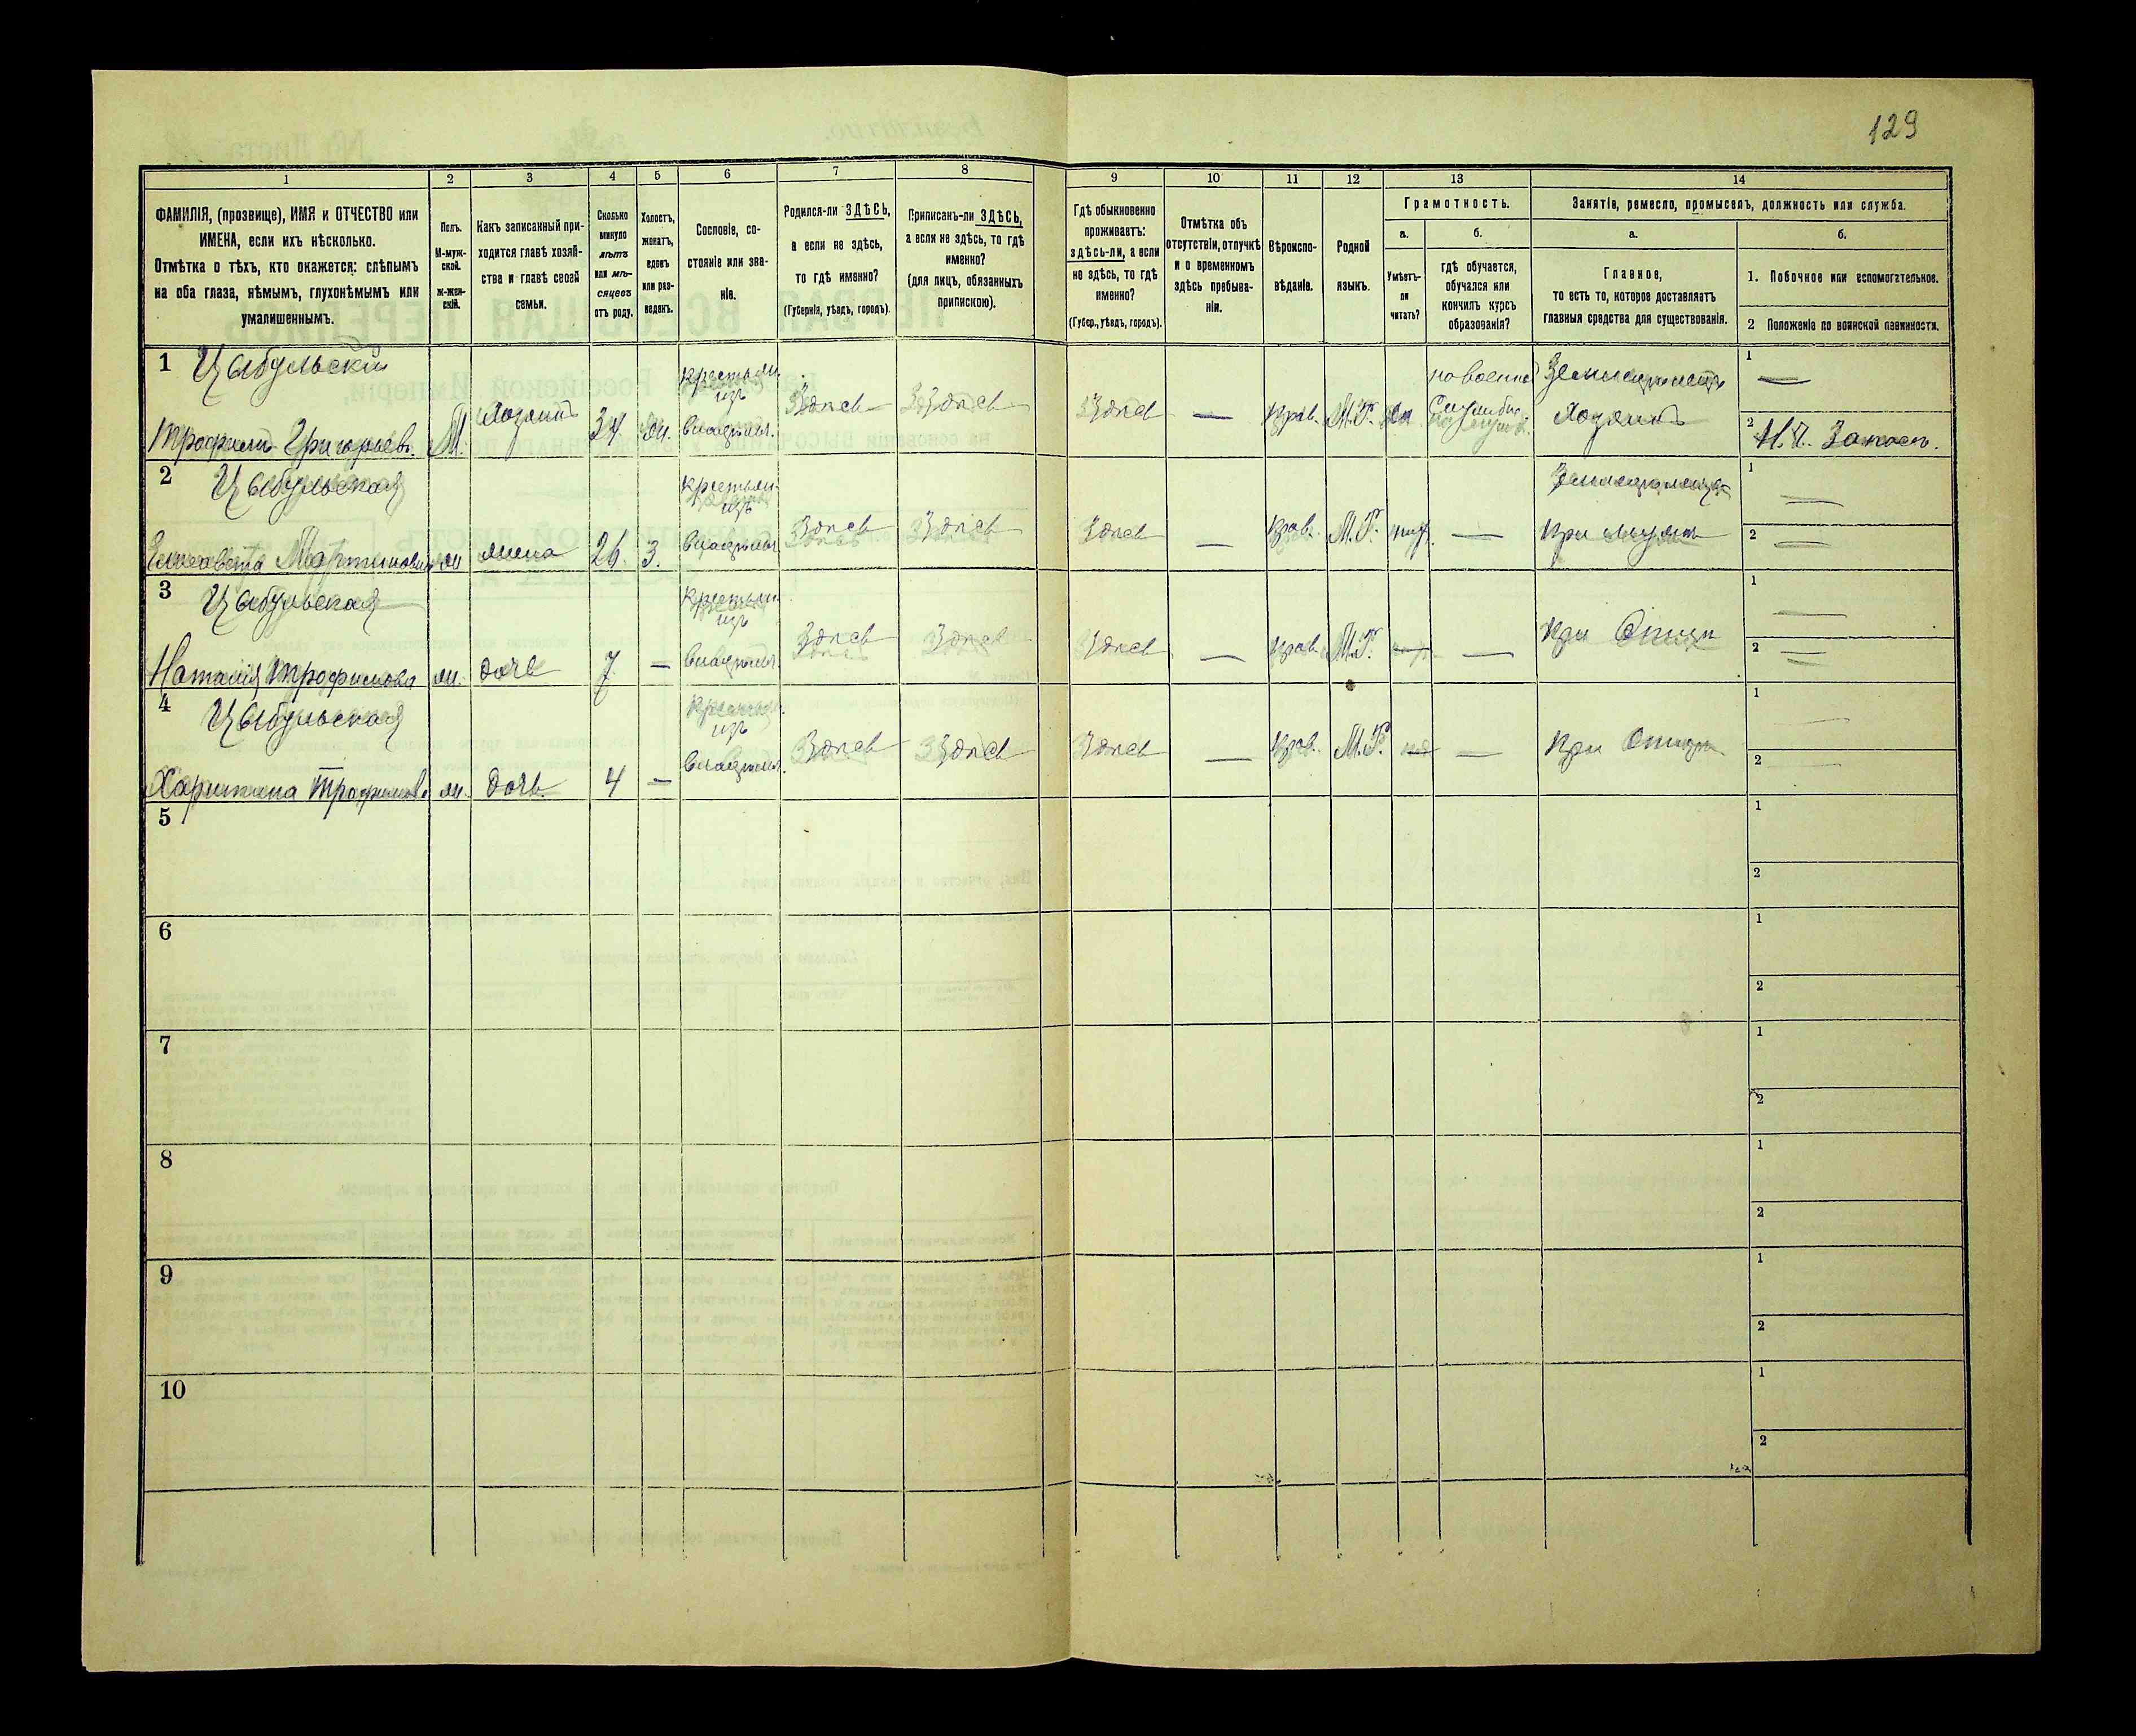 129
1
2
3
4
5
6
7
8
9
10
11
12
13
14
ФАМИЛІЯ, (прозвище), ИМЯ и ОТЧЕСТВО или
ИМЕНА, если ихъ нѣсколько.
Отмѣтка о тѣхъ, кто окажется: слѣпымъ
на оба глаза, нѣмымъ, глухонѣмымъ или
умалишеннымъ.
Полъ.
М-муж-
ской.
ж-жен-
скій.
Какъ записанный при-
ходится главѣ хозяй-
ства и главѣ своей
семьи.
Сколько
минуло
лѣтъ
или мѣ-
сяцевъ
отъ роду.
Холостъ,
женатъ,
вдовъ
или раз-
веденъ.
Сословіе, со-
стояніе или зва-
ніе.
Родился-ли ЗДѢСЬ,
а если не здѣсь,
то гдѣ именно?
(Губернія, уѣздъ, городъ).
Приписанъ-ли ЗДѢСЬ,
а если не здѣсь, то гдѣ
именно?
(для лицъ, обязанныхъ
припискою).
Гдѣ обыкновенно
проживаетъ:
здѣсь-ли, а если
не здѣсь, то гдѣ
именно?
(Губер., уѣздъ, городъ).
Отмѣтка объ
отсутствіи, отлучкѣ
и о временномъ
здѣсь пребыва-
ніи.
Вѣроиспо-
вѣданіе.
Родной
языкъ.
Грамотность.
а.
б.
Умѣетъ-
ли
читать?
гдѣ обучается,
обучался или
кончилъ курсъ
образованія?
Занятіе, ремесло, промыселъ, должность или служба.
а.
б.
Главное,
то есть то, которое доставляетъ
главныя средства для существованія.
1. Побочное или вспомогательное.
2 Положеніе по воинской повинности.
1 Цыбульскій
Трофимъ Григорьев. М. Хозяинъ 34 ж. крестьян. изъ владѣльч. Здѣсь Здѣсь Здѣсь — Прав. М.Р. да
Хозяинъ
1 —
2 Н.Ч. Запасн.
2 Цыбульская
Елисавета Мартинов. ж жена 26. З. крестьян. изъ владѣльч. Здѣсь Здѣсь Здѣсь — Прав. М.Р. —
При мужѣ
1 —
2 —
3 Цыбульская
Наталія Трофимова ж. дочь 7 — крестьян. изъ владѣльч. Здѣсь Здѣсь Здѣсь — Прав. М.Р. —
При Отцѣ
1 —
2 —
4 Цыбульская
Харитина Трофимов. ж. дочь. 4 — крестьян. изъ владѣльч. Здѣсь Здѣсь Здѣсь — Прав. М.Р. —
При Отцѣ
1 —
2 —
5
1
2
6
1
2
7
1
2
8
1
2
9
1
2
10
1
2